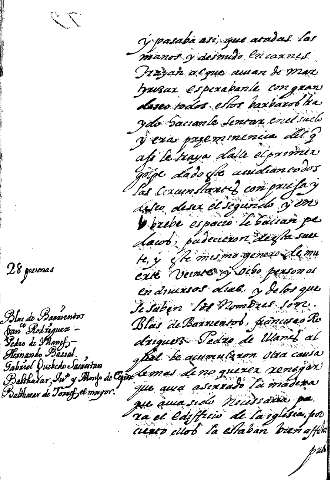 y pasaba asi, que atadas las
manos y desnudo en carnes
trayan al que avian de mar
tyrizar esperabanle con gran
deseo todos estos barbaros tra
ydo hacianle sentar en el suelo
y era preeminencia del q
assi le traya dalle el primer
golpe dado este acudian todos
los circunstantes con prissa y
deseo de ser el segundo y en
breve espacio le hacian pe
dacos, padecieron de esta suer
te, y este mismo genero de mu
erte veinte y ocho personas
en diversos dias, y de los que
se saben los nombres son
Blas de Barrientos, francisco Ro
driguez Pedro de
qual le acumularon otra causa
demas de no querer renegar
que avia aserrado la madera
que avia sido necessaria pa
ra el edifficio de la iglesia, por
cierto ellos la estaban bien
28 personas
Blas de Barrientos
Franco Rodriguez
Pedro de
Hernando
Gabriel
Balthasar
Balthasar de el mayor.